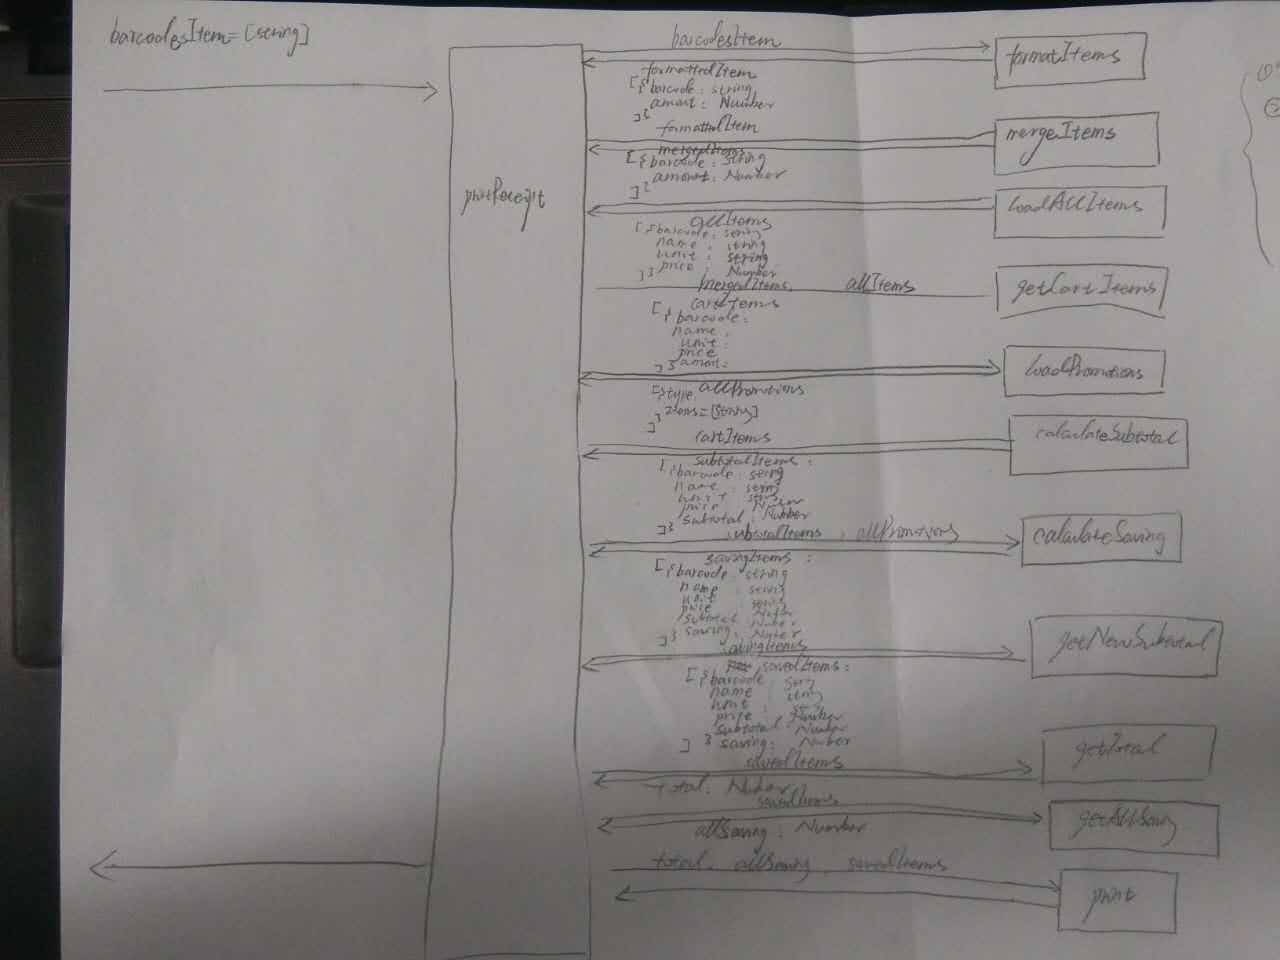 barcodesItem=[string]
printReceipt
barcodesItem
formatItems
formattedItem
[{barcode: string
amount: Number
}]
formattedItem
mergeItems
mergedItems
[{barcode: string
amount: Number
}]
loadAllItems
allItems
[{barcode: string
name: string
unit: string
price: Number
}]
mergedItems, allItems
getCartItems
cartItems
[{barcode:
name:
unit:
price
amount:
}]
loadPromotions
allPromotions
[{type
items=[string]
}]
cartItems
calculateSubtotal
subtotalItems:
[{barcode: string
name: string
unit:
price:
subtotal: Number
}]
subtotalItems, allPromotions
calculateSaving
savingItems:
[{barcode: string
name: string
unit: string
price:
subtotal:
saving:
}]
getNewSubtotal
savedItems:
[{barcode:
name:
unit:
price: Number
subtotal: Number
} saving: Number
]
savedItems
getTotal
total:
savedItems
getAllSaving
allSaving: Number
total, allSaving, savedItems
print